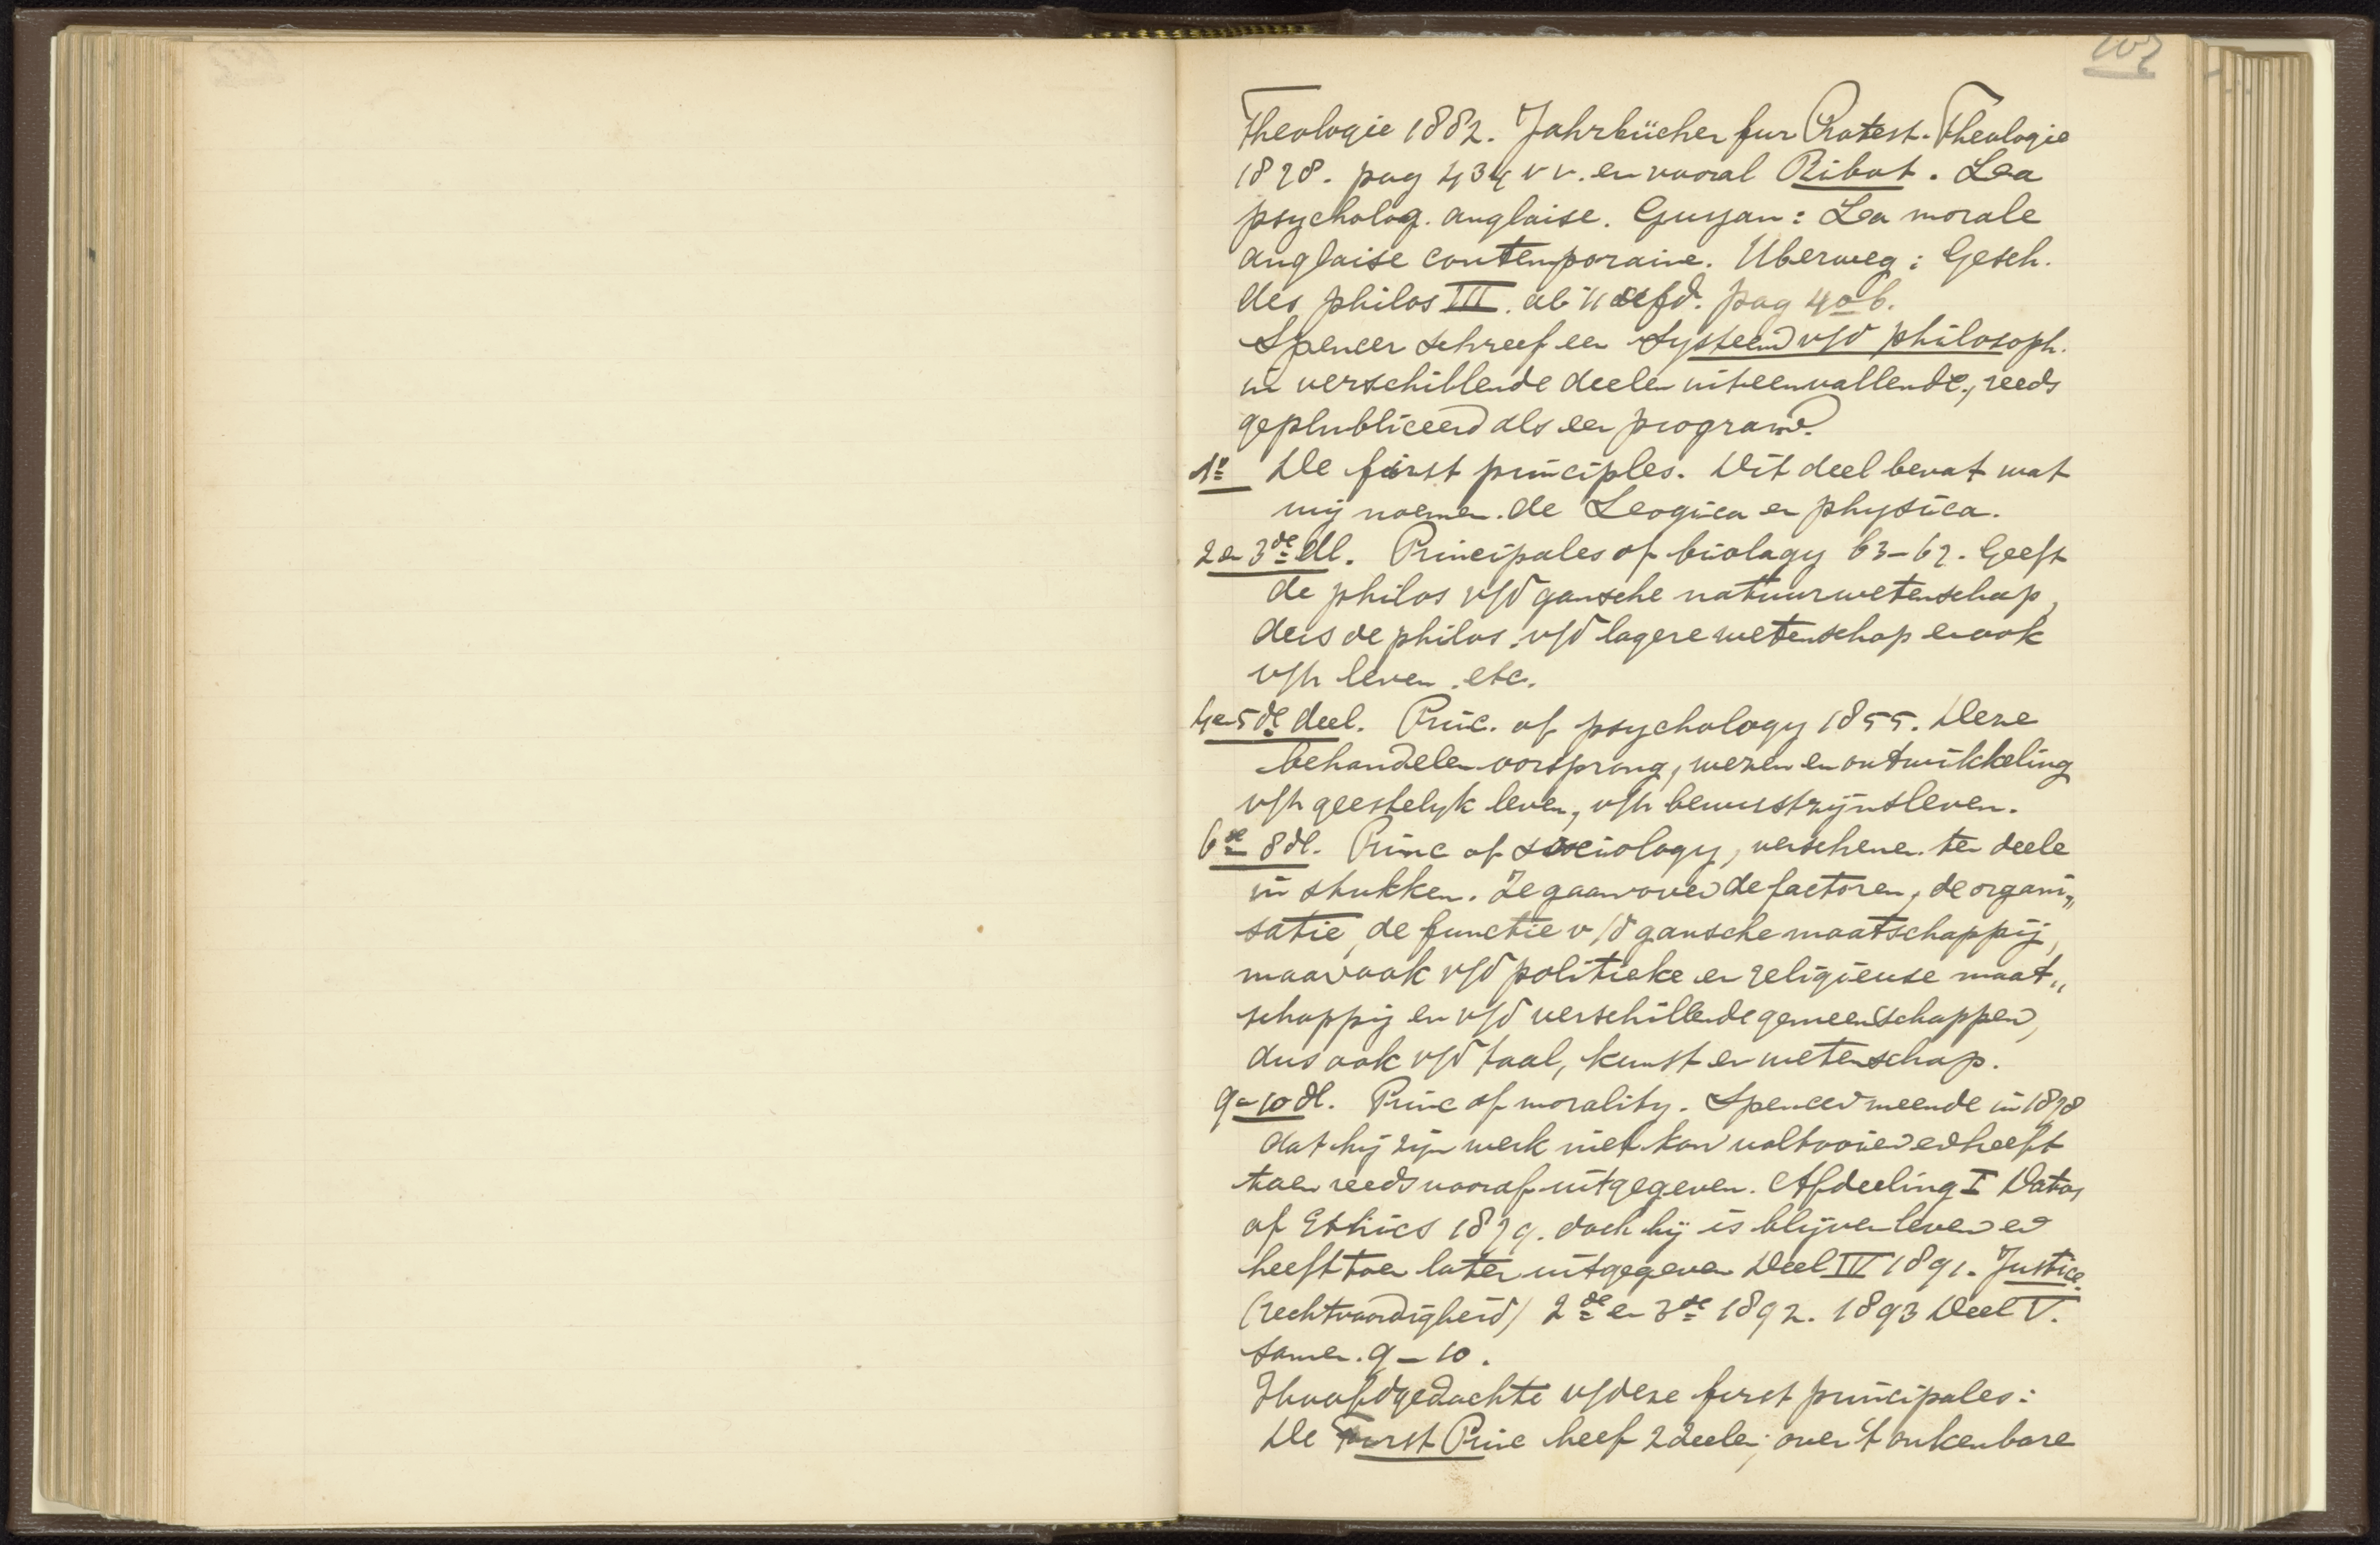 107
Theologie 1882. Jahrbücher fur Protest. Theologie
1878. pag 434 vv. en vooral Ribot. Lea
psycholog. anglaise. Guyau: Lea morale
anglaise contemporaine. Uberweg: Gesch.
des philos III. pag 406.
Spencer schreef een Systeem v/d philosoph.
in verschillende deelen uiteenvallende, reeds
geplubliceerd als een program.
1º De first principles. Dit deel bevat wat
wij noemen de Leogica en physica.
2 en 3de dl. Principales of biology 63-67. Geeft
de philos v/d gansche natuurwetenschap,
deis de philos. v/d lagere wetenschap en ook
v/h leven. etc.
4 en 5de deel. Princ. of psychology 1855. Deze
behandelen oorsprong, wezen en ontwikkeling
v/h geestelyk leven, v/h bewustzijnsleven.
6de 8 dl. Princ of sociology, verschenen ten deele
in stukken. Ze gaan over de factoren, de organi„
satie, de functie v/d gansche maatschappij,
maar ook v/d politieke en religieuse maat„
schappij en v/d verschillende gemeenschappen,
dus ook v/d taal, kunst en wetenschap.
9-10 dl. Princ of morality. Spencer meende in 1878
dat hij zijn werk niet kon voltooien en heeft
toen reeds vooraf uitgegeven. Afdeeling I Datas
of Ethics 1879. doch hij is blijven leven en
heeft toen later uitgegeven Deel IV 1891. Justice.
(rechtvaardigheid) 2de en 3de 1892. 1893 Deel V.
samen. 9-10.
Hoofdgedachte v/deze first principales:
De First Princ heef 2 deelen; over 't onkenbare